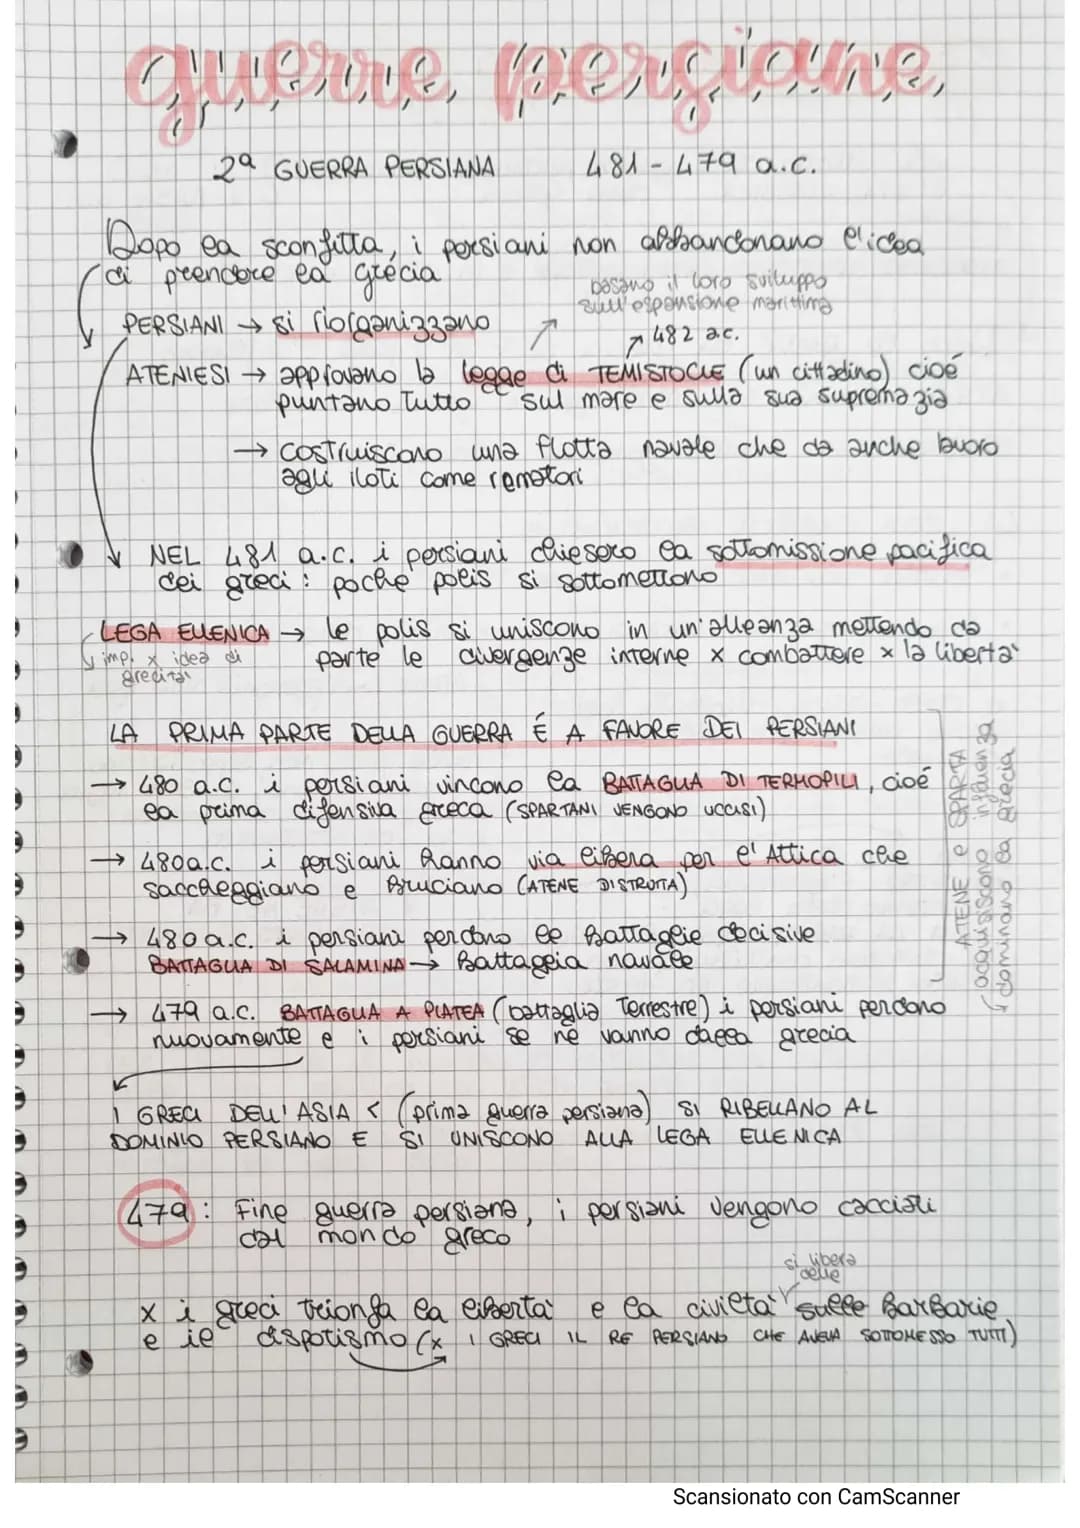 guerre persiane
2ª GUERRA PERSIANA 481-479 a.c.
Dopo la sconfitta, i persiani non abbandonano l'idea
di prendere la grecia
basano il loro sviluppo
sull'espansione marittima
PERSIANI → si riorganizzano
↗ 482 ac.
ATENIESI → approvano la legge di TEMISTOCLE (un cittadino) cioé
puntano tutto sul mare e sulla sua supremazia
→ costruiscono una flotta navale che da anche lavoro
agli iloti come rematori
NEL 481 a.c. i persiani chiesero la sottomissione pacifica
dei greci: poche polis si sottomettono
LEGA ELLENICA → le polis si uniscono in un'alleanza mettendo da
parte le divergenze interne x combattere x la libertà
imp. x idea di
grecità
LA PRIMA PARTE DELLA GUERRA É A FAVORE DEI PERSIANI
→ 480 a.c. i persiani vincono la BATTAGLIA DI TERMOPILI, cioé
la prima difensiva greca (SPARTANI VENGONO UCCISI)
→ 480a.c. i persiani hanno via libera per l'Attica che
saccheggiano e bruciano (ATENE DISTRUTTA)
→ 480 a.c. i persiani perdono le battaglie decisive
BATTAGLIA DI SALAMINA → battaglia navale
→ 479 a.c. BATTAGLIA A PLATEA (battaglia terrestre) i persiani perdono
nuovamente e i persiani se ne vanno dalla grecia
ATENE e SPARTA
acquisiscono influenza
dominano la grecia
I GRECI DELL'ASIA < (prima guerra persiana) SI RIBELLANO AL
DOMINIO PERSIANO E SI UNISCONO ALLA LEGA ELLENICA
479: Fine guerra persiana, i persiani vengono cacciati
dal mondo greco
si libera
delle
x i greci trionfa la libertà e la civiltà sulle barbarie
e il dispotismo (x I GRECI IL RE PERSIANO CHE AVEVA SOTTOMESSO TUTTI)
Scansionato con CamScanner